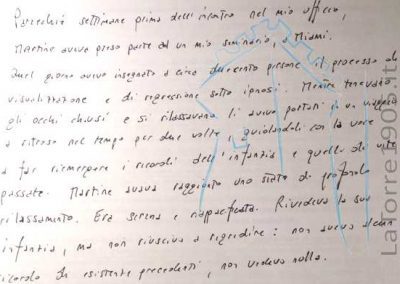 Parecchie settimane prima dell'incontro nel mio ufficio,
Martine aveva preso parte ad un mio seminario, a Miami.
Quel giorno avevo insegnato a circa duecento persone il processo di
visualizzazione e di regressione sotto ipnosi. Mentre tenevano
gli occhi chiusi e si rilassavano li avevo portati in un viaggio
a ritroso nel tempo per due volte, guidandoli con la voce
a far riemergere i ricordi dell'infanzia e quelli di vite
passate. Martine aveva raggiunto uno stato di profondo
rilassamento. Era serena e rappacificata. Rivedeva la sua
infanzia, ma non riusciva a regredire: non aveva alcun
ricordo di esistente precedenti, non vedeva nulla.
LaTorre1905.it